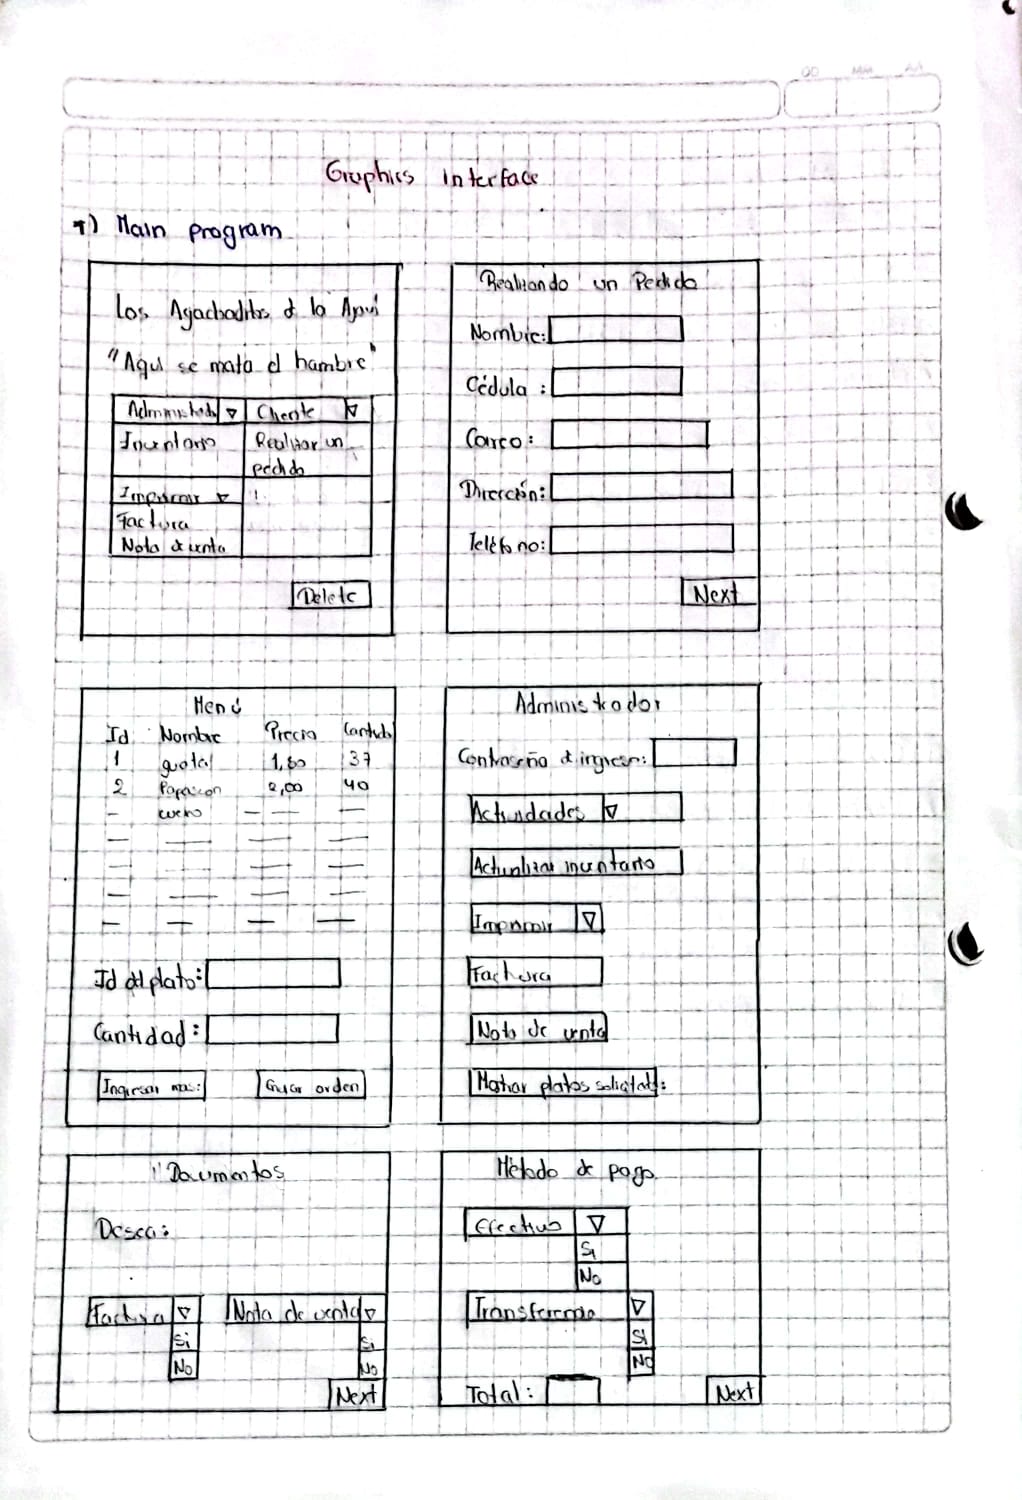 DD MM AA
Graphics interface
1) Main program
Los Agachaditos d la
"Aqui se mata el hambre"
Administrado Cliente
Inventario Realizar un
pedido
Imprimir
Factura
Nota d venta
Delete
Realizando un Pedido
Nombre:
Cédula :
Correo:
Dirección:
Teléfono:
Next
Menú
Id Nombre Precio Cantidad
1 guatal 1,80 37
2 Papa con 2,00 40
cuero
Id del plato:
Cantidad:
Ingresar mas:
orden
Administrador
Contraseña d ingreso:
Actividades
Actualizar inventario
Imprimir
Factura
Nota de venta
platos solicitad:
Documentos
Desea:
Factura Nota de venta
Si Si
No No
Next
Método de pago
Efectivo
Si
No
Transferencia
Si
No
Total:
Next